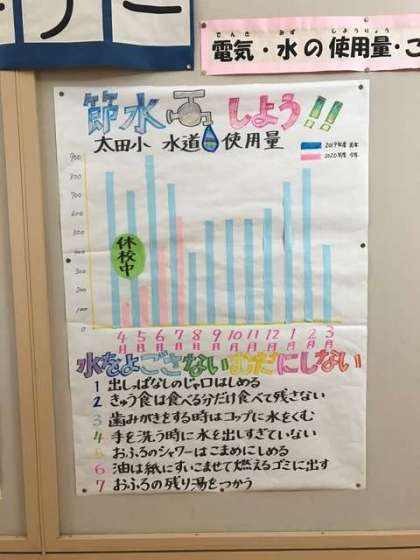 ナー
でんき みず しようりょう
電気・水の使用量・こ
節水 しよう!!
太田小 水道 使用量
2019年度 昨年
2020年度 今年
900
800
700
600
500
400
300
200
100
0
休校中
4月 5月 6月 7月 8月 9月 10月 11月 12月 1月 2月 3月
水をよごさないむだにしない
1 出しっぱなしのじゃ口はしめる
2 きゅう食は食べる分だけ食べて残さない
3 歯みがきをする時はコップに水をくむ
4 手を洗う時に水を出しすぎていない
5 おふろのシャワーはこまめにしめる
6 油は紙にすいこませて燃えるゴミに出す
7 おふろの残り湯をつかう